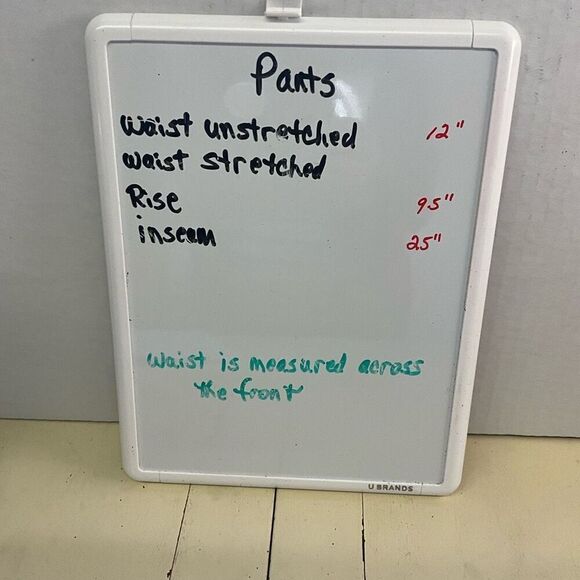 Pants
Waist unstretched 12"
Waist stretched
Rise 9.5"
inseam 25"
Waist is measured across
the front
U BRANDS